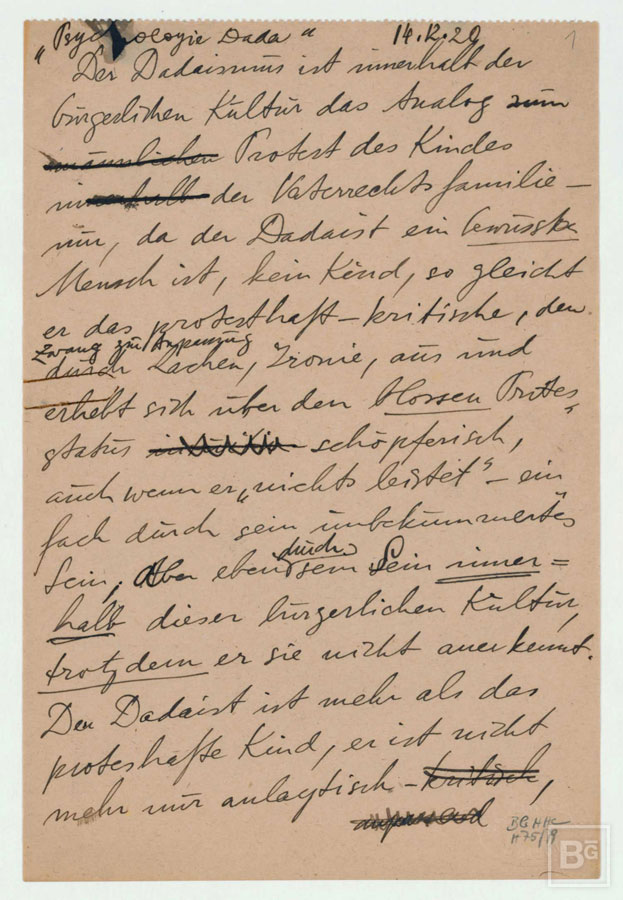 „Psychologie Dada“ 14.12.20 1
Der Dadaismus ist innerhalb der
bürgerlichen Kultur das Analog zum
männlichen Protest des Kindes
innerhalb der Vaterrechtsfamilie –
nur, da der Dadaist ein bewusster
Mensch ist, kein Kind, so gleicht
er das protesthaft-kritische, den
Zwang zur Anpassung
durch Lachen, Ironie, aus und
erhebt sich über den blossen Protes-
status schöpferisch,
auch wenn er „nichts leistet“ – ein
fach durch sein unbekümmertes
Sein, Aber eben durch sein Sein inner=
halb dieser bürgerlichen Kultur,
trotzdem er sie nicht anerkennt.
Der Dadaist ist mehr als das
proteshafte Kind, er ist nicht
mehr nur anlaytisch-kritisch,
anpassend
BG HHC
H 75/79
BG